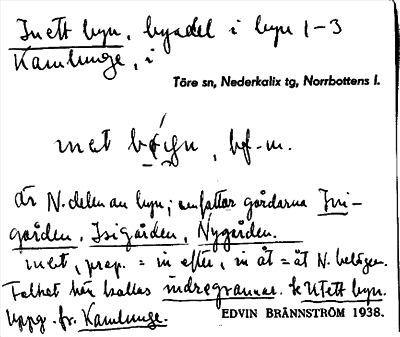 Inett byn, byadel i byn 1-3
Kamlunge, i
Töre sn, Nederkalix tg, Norrbottens l.
byn, bf. m.
är N. delen av byn; omfattar gårdarna Ini-
gården, Isigården, Nygården.
inet, prep. = in efter, in åt = åt N. belägen.
Folket här kallas indregrannar. fr Utett byn.
Uppg. fr. Kamlunge.
EDVIN BRÄNNSTRÖM 1938.